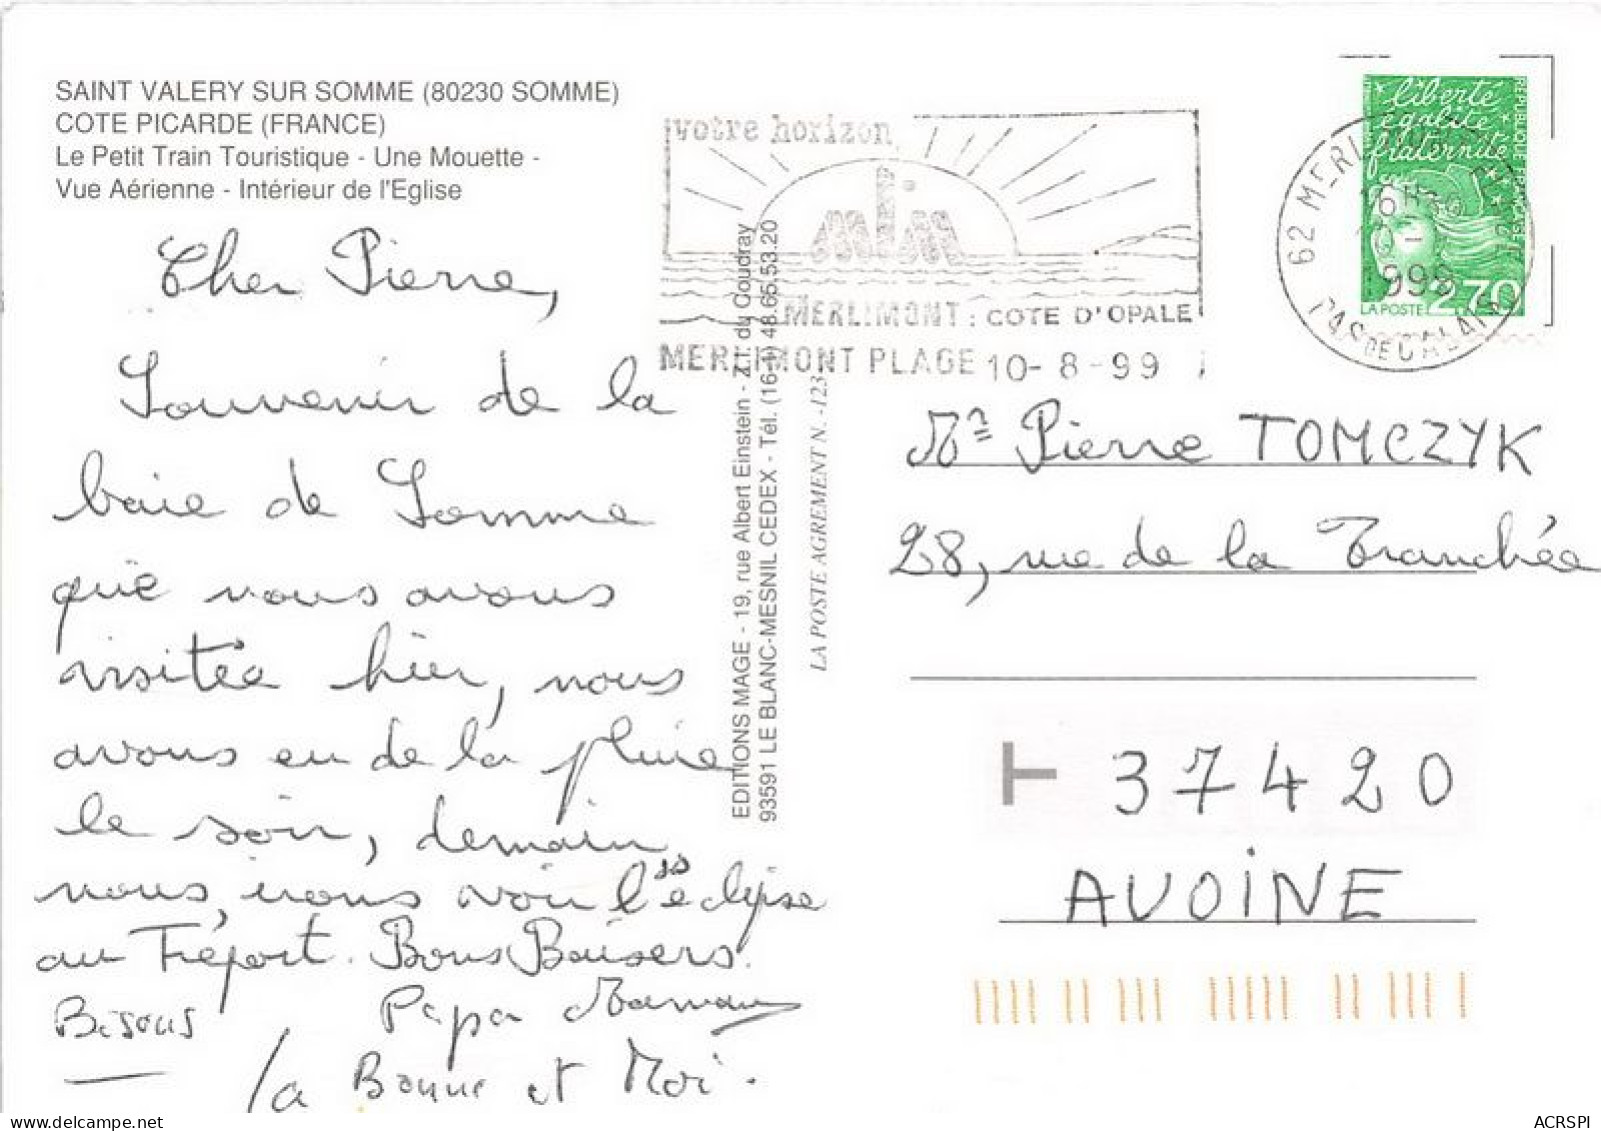 SAINT VALERY SUR SOMME (80230 SOMME)
COTE PICARDE (FRANCE)
Le Petit Train Touristique - Une Mouette -
Vue Aérienne - Intérieur de l'Eglise
Cher Pierre,
Souvenir de la
baie de Somme
que nous avons
visitée hier, nous
avons eu de la pluie
le soir, demain
nous irons voir l'éclipse
au Tréport. Bons Baisers.
Bisous Papa Maman
la Bonne et Moi.
EDITIONS MAGE - 19, rue Albert Einstein - Z.I. du Coudray
93591 LE BLANC-MESNIL CEDEX - Tél. (16-1) 48.65.53.20
LA POSTE AGREMENT N. -123
votre horizon
MERLIMONT : COTE D'OPALE
MERLIMONT PLAGE 10-8-99
liberté
égalité
fraternité
REPUBLIQUE FRANÇAISE
LA POSTE 2,70
62 MERLIMONT
PAS DE CALAIS
Mr Pierre TOMCZYK
28, rue de la Tranchée
37420
AVOINE
ACRSPI